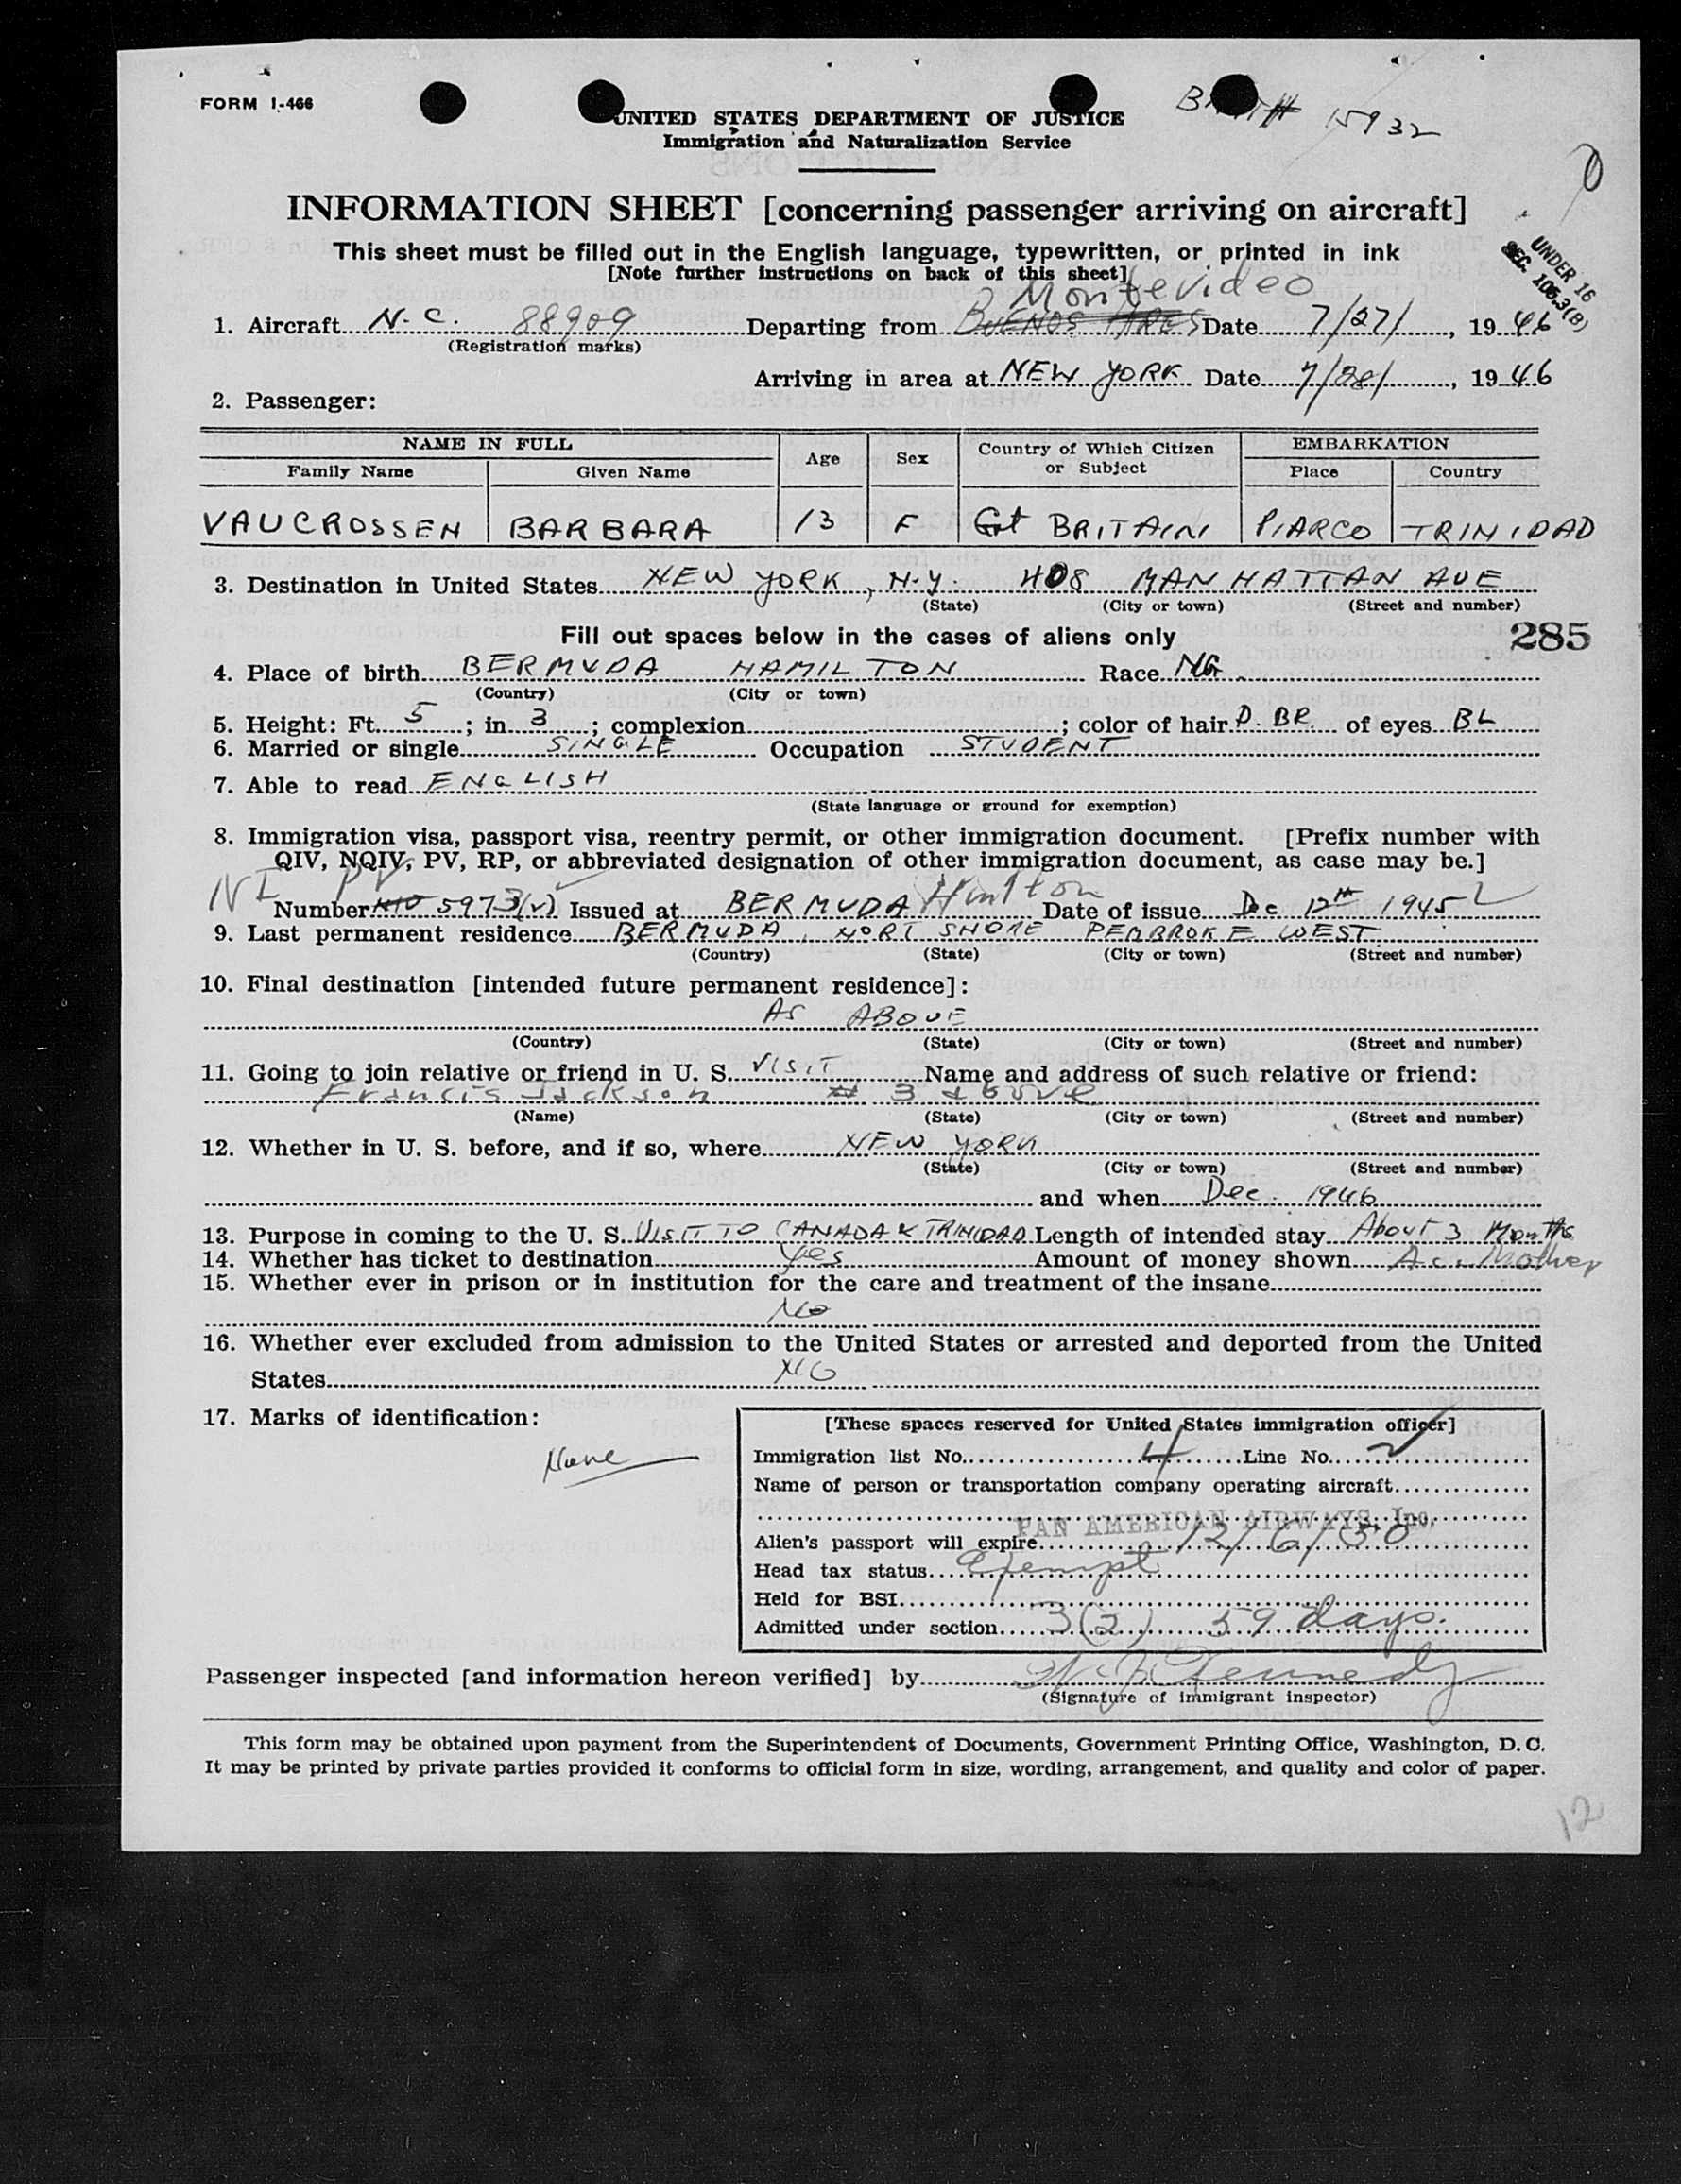 FORM I-466
15932
UNITED STATES DEPARTMENT OF JUSTICE
Immigration and Naturalization Service
INFORMATION SHEET [concerning passenger arriving on aircraft]
This sheet must be filled out in the English language, typewritten, or printed in ink
[Note further instructions on back of this sheet]
UNDER 16
SEC. 106.3(B)
Montevideo
1. Aircraft N.C. 88909 Departing from BUENOS AIRES Date 7/27/, 1946
(Registration marks)
Arriving in area at NEW YORK Date 7/28/, 1946
2. Passenger:
NAME IN FULL Age Sex Country of Which Citizen or Subject EMBARKATION
Family Name Given Name Place Country
VAUCROSSEN BARBARA 13 F Gt BRITAIN PIARCO TRINIDAD
3. Destination in United States NEW YORK, N.Y. 408 MANHATTAN AVE
(State) (City or town) (Street and number)
Fill out spaces below in the cases of aliens only
285
4. Place of birth BERMUDA HAMILTON Race NG
(Country) (City or town)
5. Height: Ft. 5; in. 3; complexion; color of hair D. BR. of eyes BL
6. Married or single SINGLE Occupation STUDENT
7. Able to read ENGLISH
(State language or ground for exemption)
8. Immigration visa, passport visa, reentry permit, or other immigration document. [Prefix number with
QIV, NQIV, PV, RP, or abbreviated designation of other immigration document, as case may be.]
NI PV
Number 5973(v) Issued at BERMUDA Hmlton Date of issue Dec 12th 1945
9. Last permanent residence BERMUDA, NORT SHORE PEMBROKE WEST
(Country) (State) (City or town) (Street and number)
10. Final destination [intended future permanent residence]:
AS ABOVE
(Country) (State) (City or town) (Street and number)
11. Going to join relative or friend in U. S. VISIT Name and address of such relative or friend:
Francis Jackson # 3 above
(Name) (State) (City or town) (Street and number)
12. Whether in U. S. before, and if so, where NEW YORK
(State) (City or town) (Street and number)
and when Dec. 1946
13. Purpose in coming to the U. S. VISIT TO CANADA & TRINIDAD Length of intended stay About 3 Months
14. Whether has ticket to destination Yes Amount of money shown Ac. Mother
15. Whether ever in prison or in institution for the care and treatment of the insane
No
16. Whether ever excluded from admission to the United States or arrested and deported from the United
States NO
17. Marks of identification:
None
[These spaces reserved for United States immigration officer]
Immigration list No. 4 Line No. 2
Name of person or transportation company operating aircraft
PAN AMERICAN AIRWAYS, Inc.
Alien's passport will expire 12/6/50
Head tax status Exempt
Held for BSI
Admitted under section 3(2) 59 days.
Passenger inspected [and information hereon verified] by W. J. Kennedy
(Signature of immigrant inspector)
This form may be obtained upon payment from the Superintendent of Documents, Government Printing Office, Washington, D. C.
It may be printed by private parties provided it conforms to official form in size, wording, arrangement, and quality and color of paper.
12